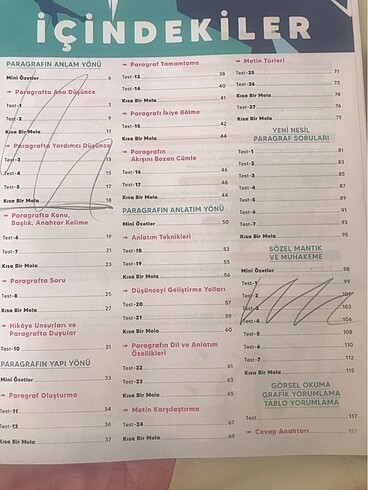 İÇİNDEKİLER
PARAGRAFIN ANLAM YÖNÜ
Mini Özetler 6
Paragrafta Ana Düşünce
Test-1 7
Test-2 9
Kısa Bir Mola 11
Paragrafta Yardımcı Düşünce
Test-3 13
Test-4 15
Test-5 17
Kısa Bir Mola 18
Paragrafta Konu,
Başlık, Anahtar Kelime
Test-6 19
Test-7 21
Kısa Bir Mola 23
Paragrafta Soru
Test-8 25
Kısa Bir Mola 27
Hikâye Unsurları ve
Paragrafta Duyular
Test-10 31
PARAGRAFIN YAPI YÖNÜ
Mini Özetler 33
Paragraf Oluşturma
Test-11 34
Test-12 36
Kısa Bir Mola 37
Paragraf Tamamlama
Test-13 38
Test-14 40
Kısa Bir Mola 41
Paragrafı İkiye Bölme
Test-15 42
Kısa Bir Mola 44
Paragrafın
Akışını Bozan Cümle
Test-16 46
Test-17 48
Kısa Bir Mola 44
PARAGRAFIN ANLATIM YÖNÜ
Mini Özetler 50
Anlatım Teknikleri
Test-18 53
Test-19 55
Kısa Bir Mola 56
Düşünceyi Geliştirme Yolları
Test-20 57
Test-21 59
Kısa Bir Mola 60
Paragrafın Dil ve Anlatım
Özellikleri
Test-22 61
Test-23 63
Kısa Bir Mola 65
Metin Karşılaştırma
Test-24 67
Kısa Bir Mola 69
Metin Türleri
Test-25 71
Test-26 73
Kısa Bir Mola 74
Test-27 76
Kısa Bir Mola 79
YENİ NESİL
PARAGRAF SORULARI
Test-1 81
Test-2 83
Test-3 85
Test-4 87
Test-5 89
Test-6 91
Test-7 93
Kısa Bir Mola 95
SÖZEL MANTIK
VE MUHAKEME
Mini Özetler 98
Test-1 99
Test-2 101
Test-3 103
Test-4 106
Test-5 108
Test-6 110
Test-7 112
Kısa Bir Mola 115
GÖRSEL OKUMA
GRAFİK YORUMLAMA
TABLO YORUMLAMA
Test 117
Cevap Anahtarı 157